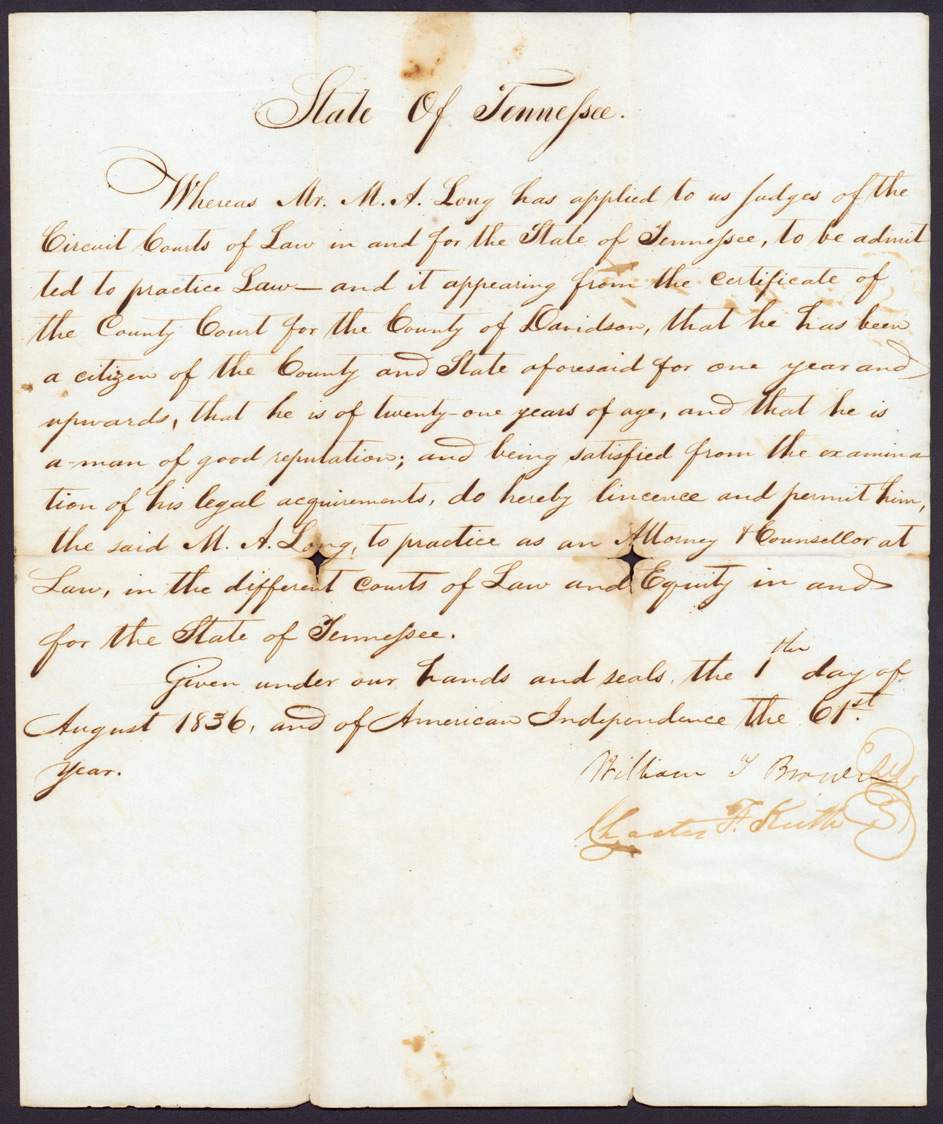 State Of Tennessee.
Whereas Mr. M. A. Long has applied to us Judges of the
Circuit Courts of Law in and for the State of Tennessee, to be admit
ted to practice Law— and it appearing from the certificate of
the County Court for the County of Davidson, that he has been
a citizen of the County and State aforesaid for one year and
upwards, that he is of twenty-one years of age, and that he is
a man of good reputation; and being satisfied from the examina
tion of his legal acquirements, do hereby lincence and permit him,
the said M. A. Long, to practice as an Attorney & Counsellor at
Law, in the different courts of Law and Equity in and
for the State of Tennessee.
Given under our hands and seals, the 1st day of
August 1836, and of American Independence the 61st.
year.
William T Brown
Charles F. Keith